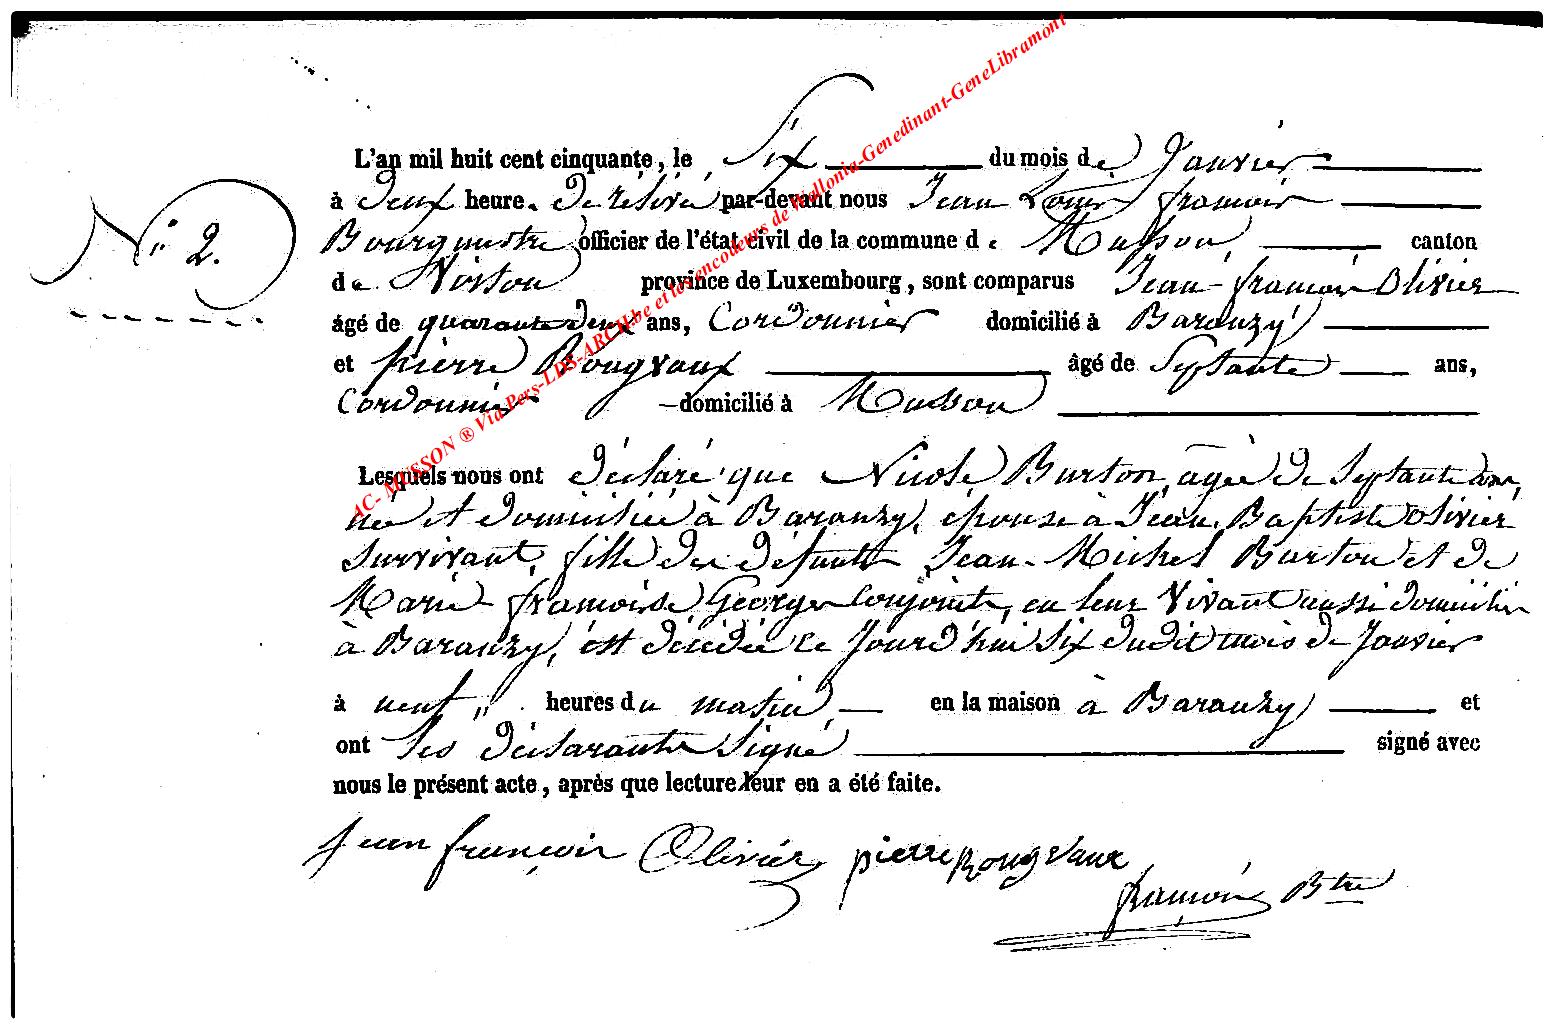 AC- MUSSON ® Via Pers-LDS-ARCH.be et les encodeurs de Wallonia-Genedinant-GeneLibramont
L'an mil huit cent cinquante, le Six du mois de Janvier
à deux heure. de rélévé par-devant nous Jean Louis françois
N° 2. Bourgmestre officier de l'état civil de la commune de Musson, canton
de Virton province de Luxembourg, sont comparus Jean-françois Olivier
âgé de quarante deux ans, Cordonnier domicilié à Baranzy
et pierre Rougvaux âgé de Septante ans,
Cordonnier domicilié à Musson
Lesquels nous ont déclaré que Nicole Burton, agée de Septante ans,
née et domiciliée à Baranzy, épouse à Jean Baptiste Olivier
Survivant, fille des défunts Jean-Michel Burton et de
Marie françoise George Conjoints, en leur Vivant aussi domiciliés
à Baranzy, est décédée ce Jourd'hui Six dudit mois de Janvier
à neuf heures du matin en la maison à Baranzy et
ont les déclarants Signé signé avec
nous le présent acte, après que lecture leur en a été faite.
Jean françois Olivier pierre Rougvaux
françois Btre